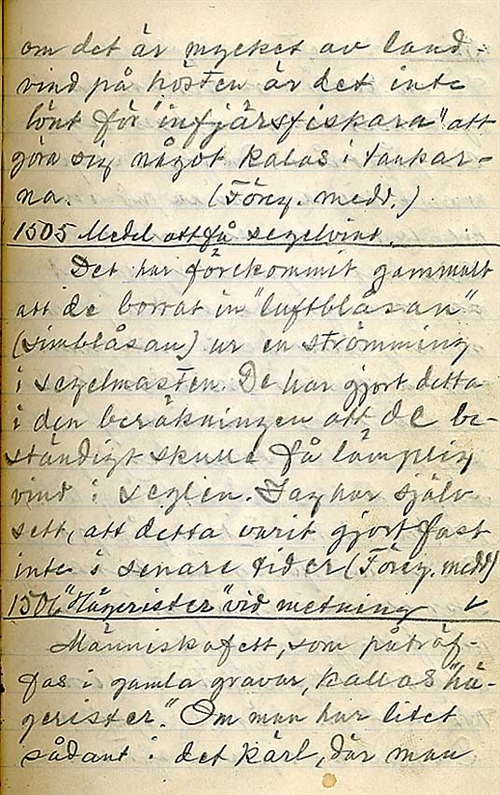 om det är mycket av land-
vind på hösten är det inte
lönt för "infjärsfiskara" att
göra sig något kalas i tankar-
na. (Föreg. medd.)
1505 Medel att få segelvind.
Det har förekommit gammalt
att de borrat in "luftblåsan"
(simblåsan) ur en strömming
i segelmasten. De har gjort detta
i den beräkningen att de be-
ständigt skulle få lämplig
vind i seglen. Jag har själv
sett, att detta varit gjort fast
inte i senare tider (Föreg. medd)
1506 "Hägerister" vid metning √
Människofett, som påträf-
fas i gamla gravar, kallas "hä-
gerister." Om man har litet
sådant i det kärl, där man